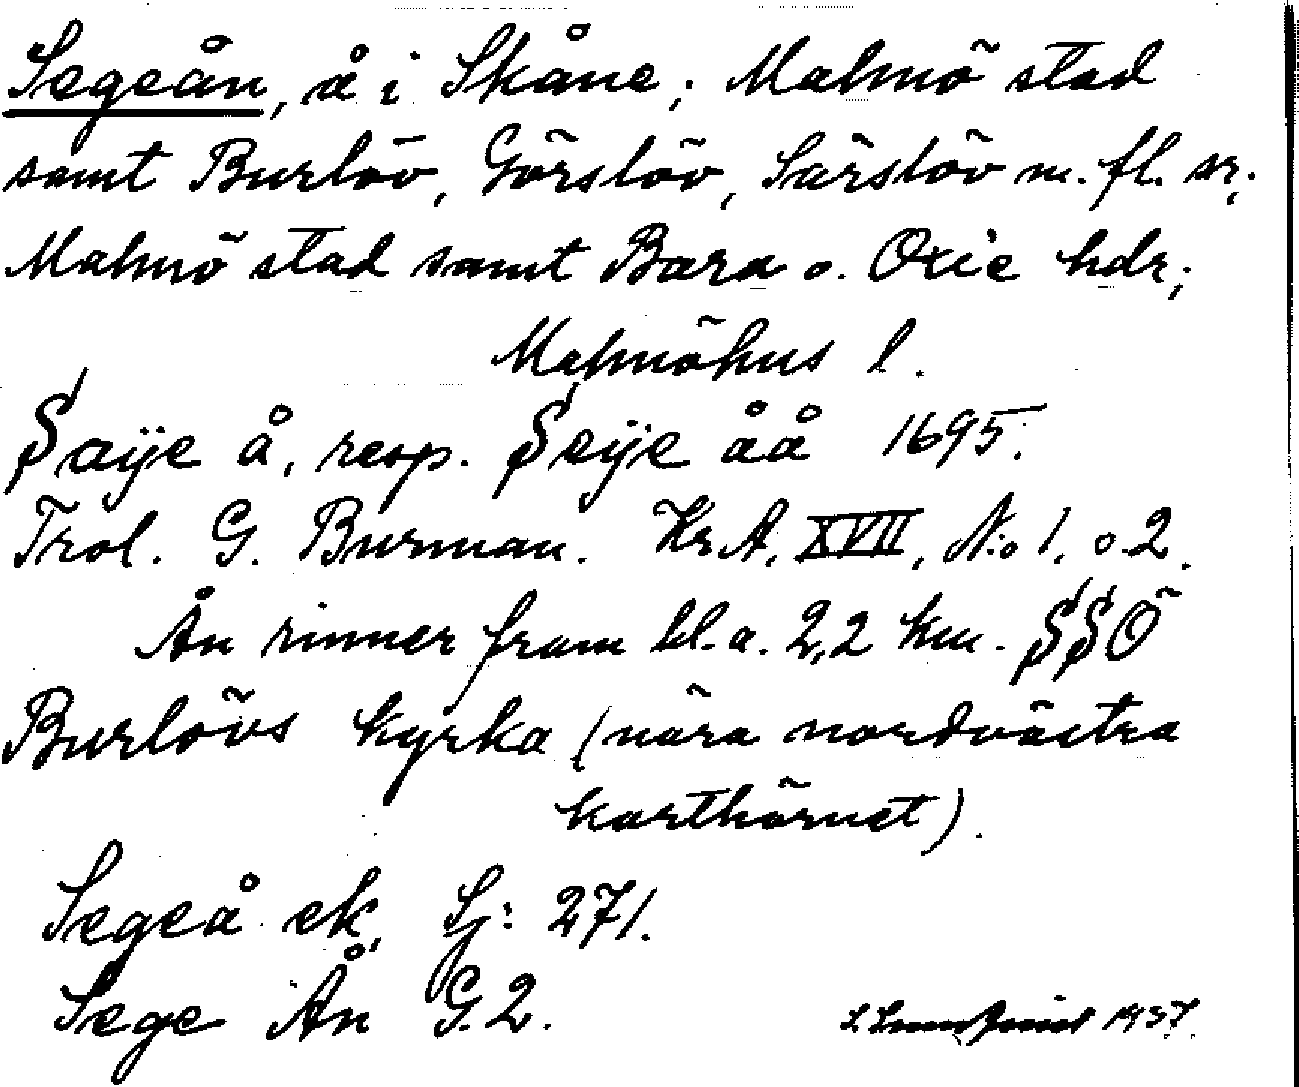 Segeån, å i Skåne; Malmö stad
samt Burlöv, Görslöv, Särslöv m. fl. sr;
Malmö stad samt Bara o. Oxie hdr;
Malmöhus l.
Saÿe å, resp. Seÿe åå 1695.
Trol. G. Burman. Kr.A. XVII, N:o 1. o 2.
Ån rinner fram bl. a. 2,2 km. SSÖ
Burlövs kyrka (nära nordvästra
karthörnet).
Segeå ek, Sj: 271.
Sege Ån G. 2.
1937